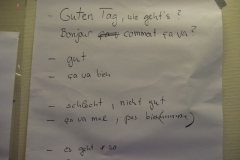 - Guten Tag, wie geht's?
Bonjour comment ça va?
- gut
- ça va bien
- schlecht, nicht gut
- ça va mal, pas bien
- es geht